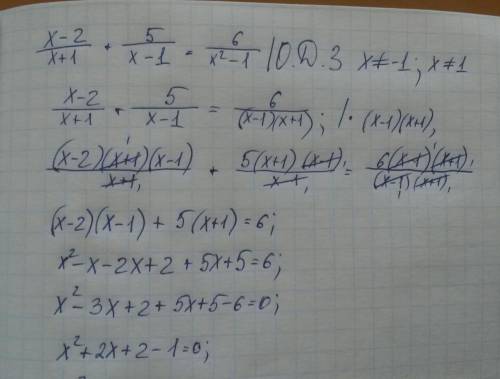 (x-2)/(x+1) + 5/(x-1) = 6/(x²-1) | О.Д.З x≠-1; x≠1
(x-2)/(x+1) + 5/(x-1) = 6/((x-1)(x+1)); | · (x-1)(x+1),
((x-2)(x+1)(x-1))/(x+1) + (5(x+1)(x-1))/(x-1) = (6(x-1)(x+1))/((x-1)(x+1))
(x-2)(x-1) + 5(x+1) = 6;
x²-x-2x+2+5x+5=6;
x²-3x+2+5x+5-6=0;
x²+2x+2-1=0;